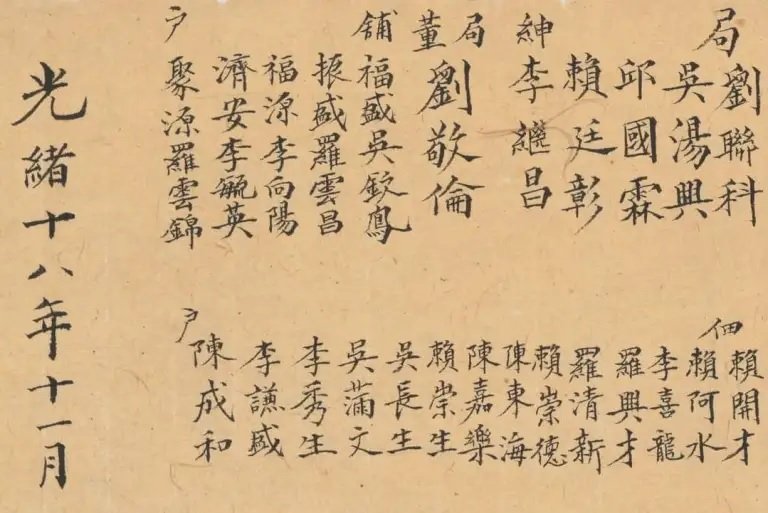 局紳
劉聯科
吳湯興
邱國霖
賴廷彰
李繼昌
局董
劉敬倫
舖戶
福盛吳欽
振盛羅雲昌
福源李向陽
濟安李毓英
聚源羅雲錦
佃戶
賴開才
賴阿水
李喜龍
羅興才
羅清新
賴崇德
陳東海
陳嘉樂
賴崇生
吳長生
吳滿文
李秀生
李謙盛
陳成和
光緒十八年十一月